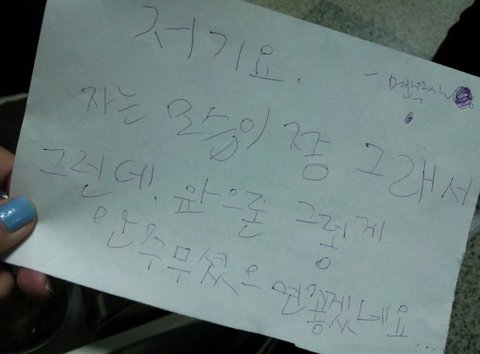 저기요.
자는 모습이 좀 그래서
그런데 앞으론 그렇게
안주무셨으면 좋겠네요...